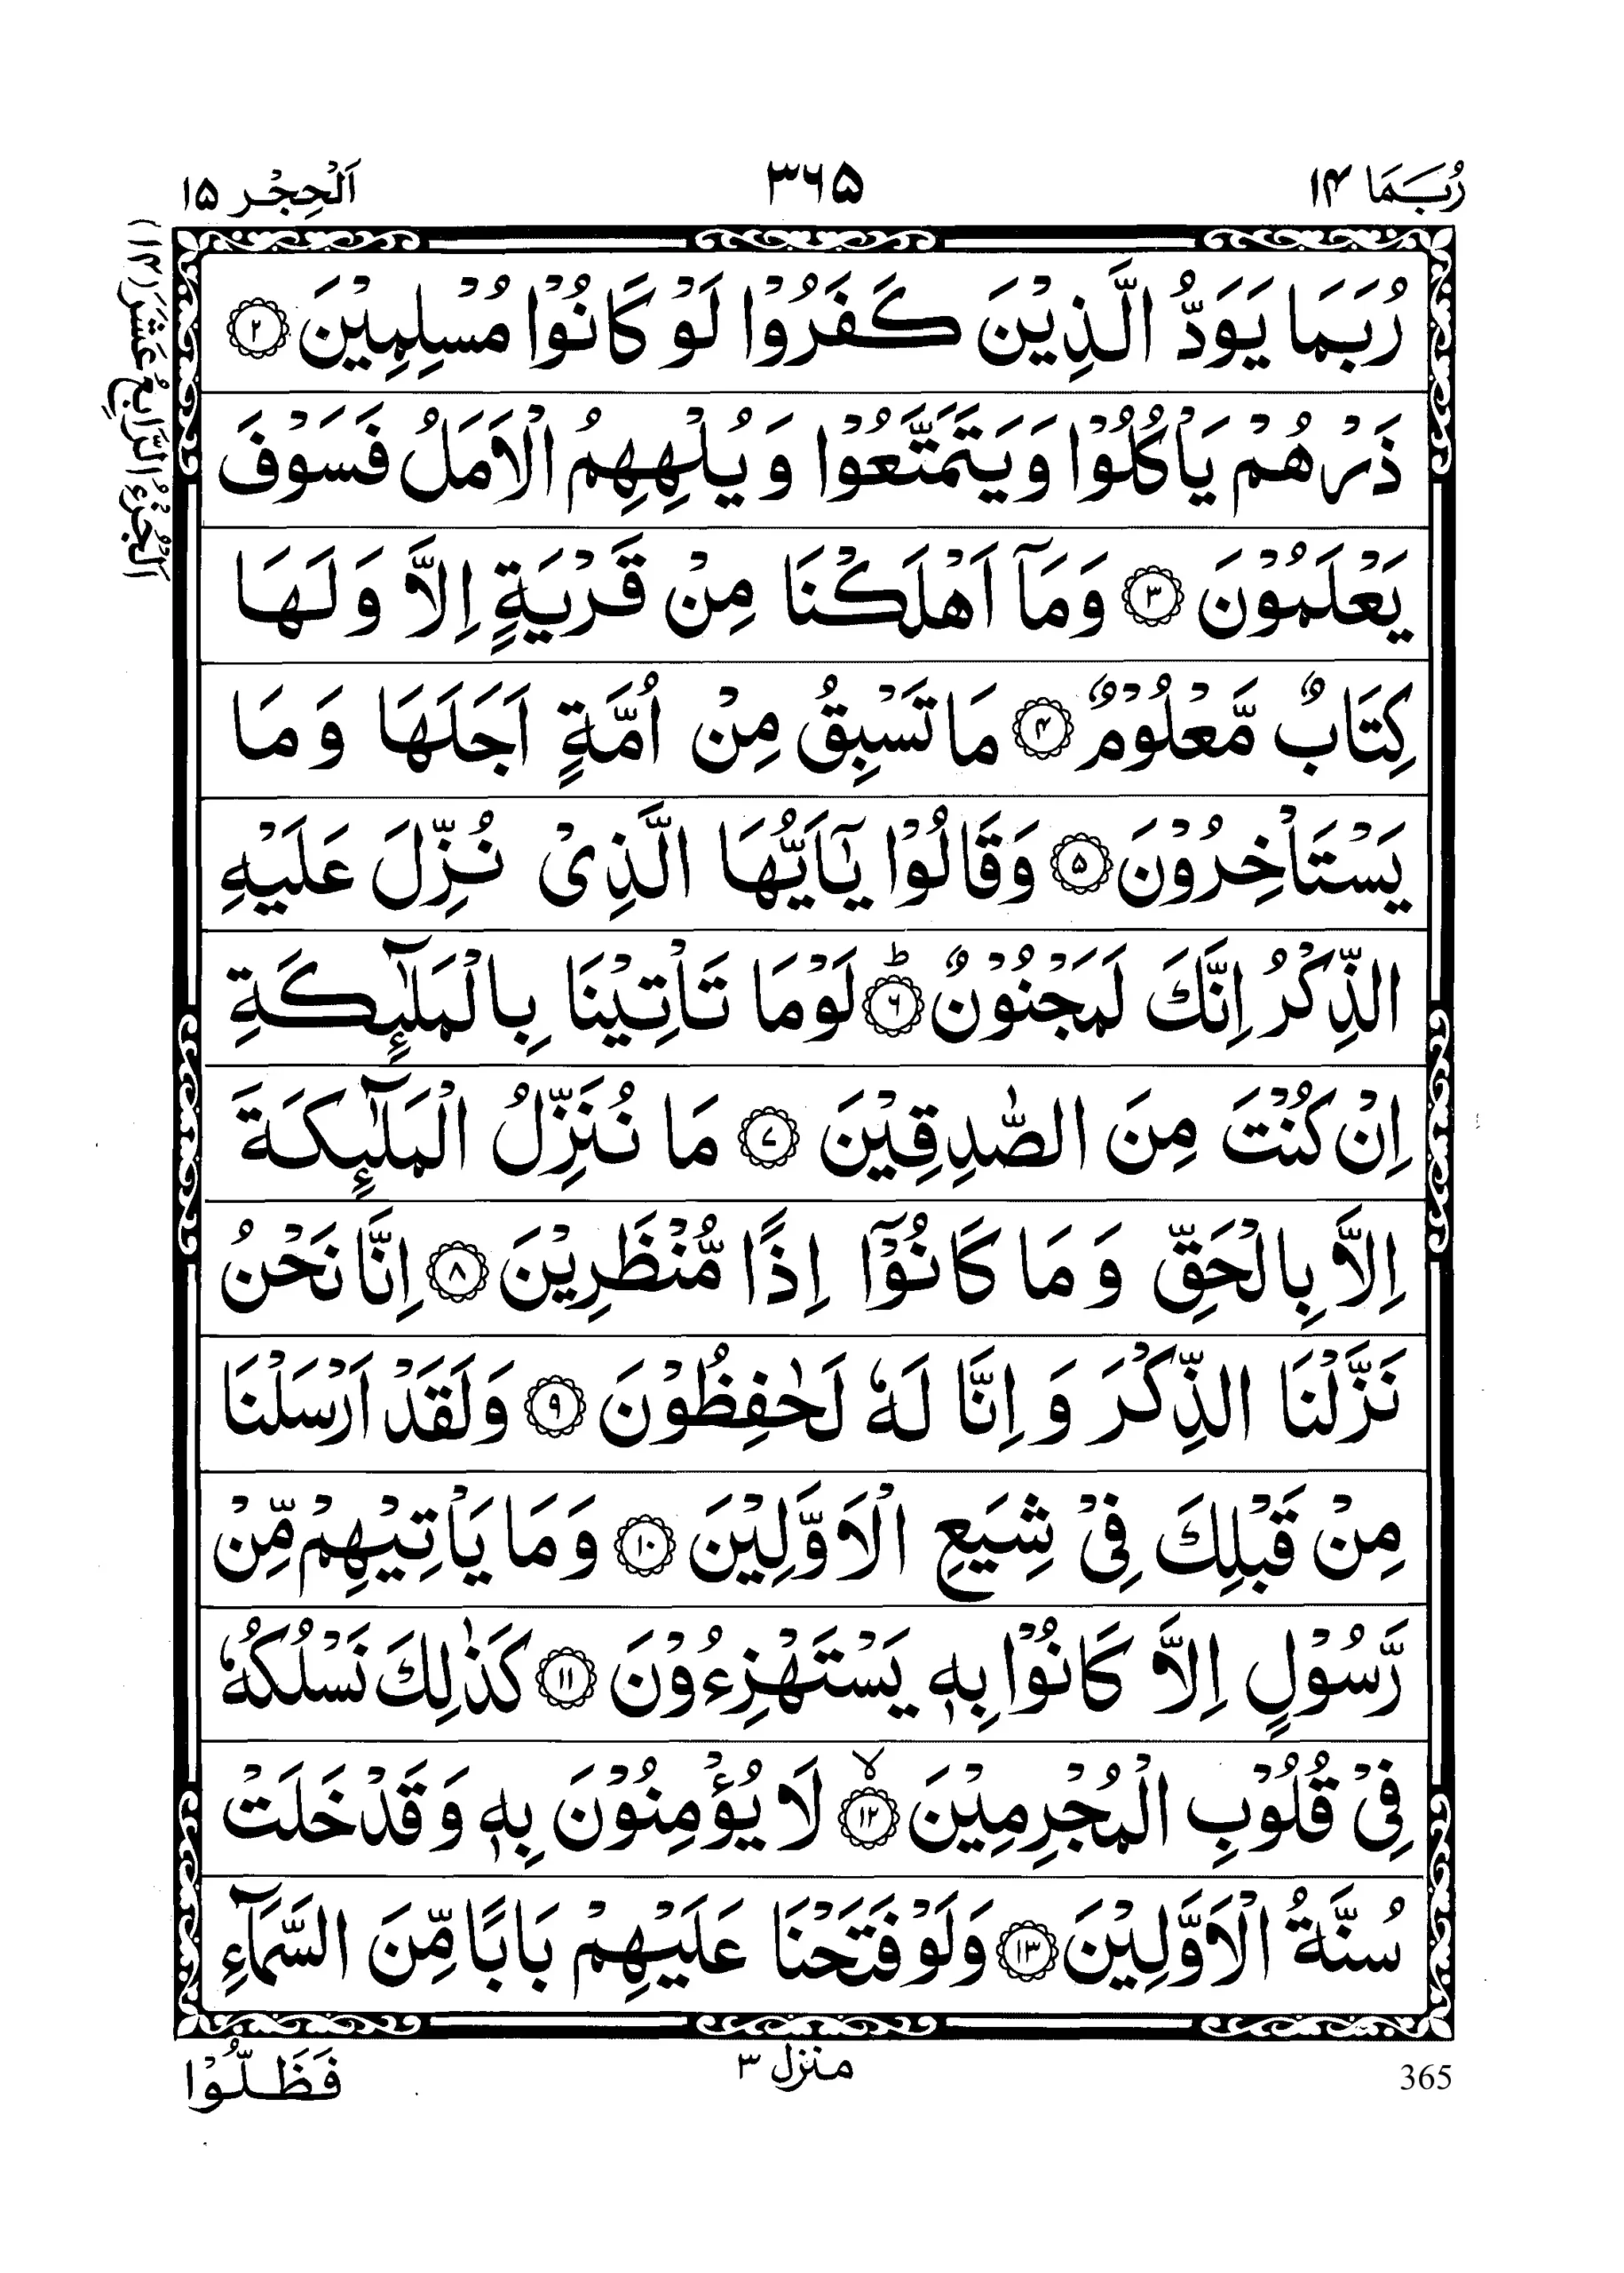 رُبَمَا ۱۴
۳۶۵
اَلْحِجْر ۱۵
اَلْجُزْءُ الرَّابِعُ عَشَرَ (۱۴)
رُبَمَا يَوَدُّ الَّذِيْنَ كَفَرُوْا لَوْ كَانُوْا مُسْلِمِيْنَ ۝۲
ذَرْهُمْ يَاْكُلُوْا وَيَتَمَتَّعُوْا وَيُلْهِهِمُ الْاَمَلُ فَسَوْفَ
يَعْلَمُوْنَ ۝۳ وَمَاۤ اَهْلَكْنَا مِنْ قَرْيَةٍ اِلَّا وَلَهَا
كِتَابٌ مَّعْلُوْمٌ ۝۴ مَا تَسْبِقُ مِنْ اُمَّةٍ اَجَلَهَا وَمَا
يَسْتَاْخِرُوْنَ ۝۵ وَقَالُوْا يٰۤاَيُّهَا الَّذِىْ نُزِّلَ عَلَيْهِ
الذِّكْرُ اِنَّكَ لَمَجْنُوْنٌ ؕ۝۶ لَوْمَا تَاْتِيْنَا بِالْمَلٰٓٮِٕكَةِ
اِنْ كُنْتَ مِنَ الصّٰدِقِيْنَ ۝۷ مَا نُنَزِّلُ الْمَلٰٓٮِٕكَةَ
اِلَّا بِالْحَقِّ وَمَا كَانُوْۤا اِذًا مُّنْظَرِيْنَ ۝۸ اِنَّا نَحْنُ
نَزَّلْنَا الذِّكْرَ وَاِنَّا لَهٗ لَحٰفِظُوْنَ ۝۹ وَلَقَدْ اَرْسَلْنَا
مِنْ قَبْلِكَ فِىْ شِيَعِ الْاَوَّلِيْنَ ۝۱۰ وَمَا يَاْتِيْهِمْ مِّنْ
رَّسُوْلٍ اِلَّا كَانُوْا بِهٖ يَسْتَهْزِءُوْنَ ۝۱۱ كَذٰلِكَ نَسْلُكُهٗ
فِىْ قُلُوْبِ الْمُجْرِمِيْنَ ۙ۝۱۲ لَا يُؤْمِنُوْنَ بِهٖ وَقَدْ خَلَتْ
سُنَّةُ الْاَوَّلِيْنَ ۝۱۳ وَلَوْ فَتَحْنَا عَلَيْهِمْ بَابًا مِّنَ السَّمَآءِ
منزل ۳
فَظَلُّوْا
365